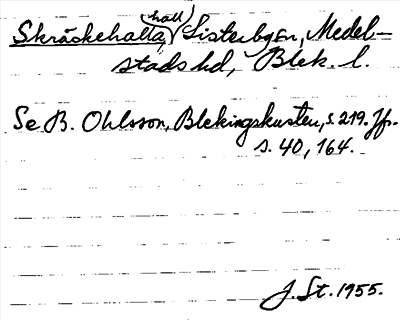 Skräckehalla, (hall) Listerbyen, Medel-
stads hd, Blek. l.
Se B. Ohlsson, Blekingskusten, s. 219. Jfr.
s. 40, 164.
J. St. 1955.